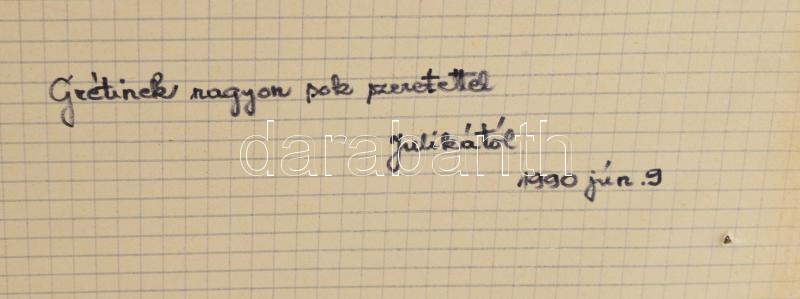 Grétinek nagyon sok szeretettel
darabanth
Julikától
1990 jún. 9